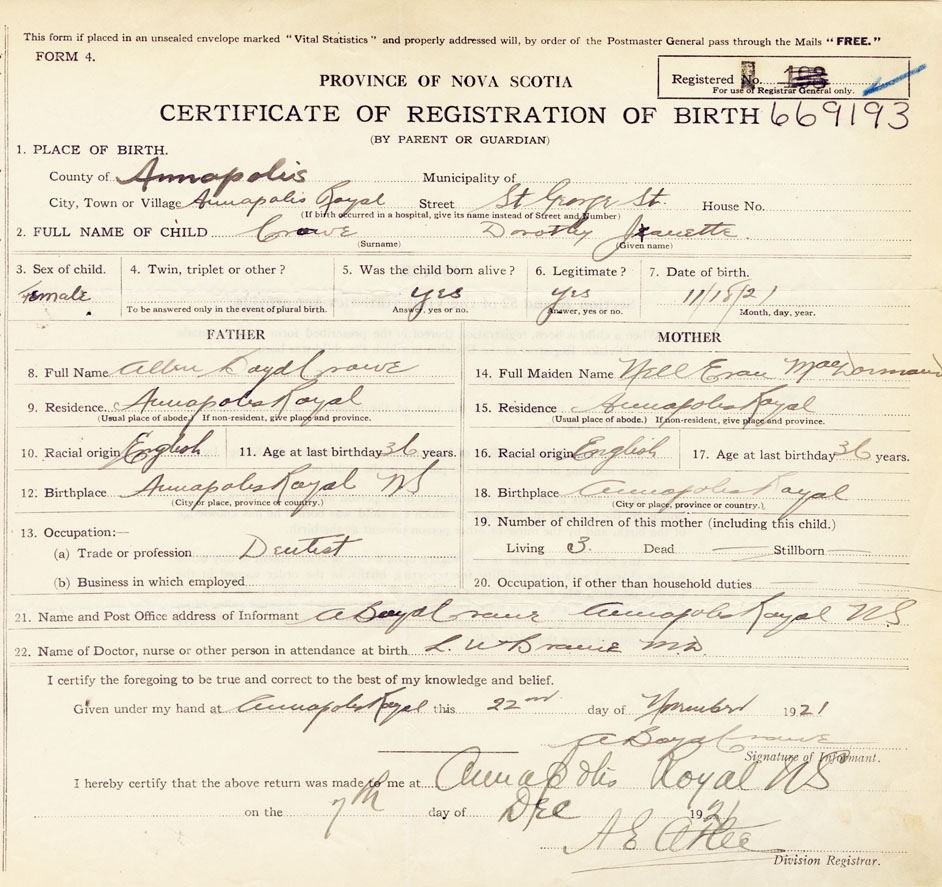 This form if placed in an unsealed envelope marked "Vital Statistics" and properly addressed will, by order of the Postmaster General pass through the Mails "FREE."
FORM 4.
Registered No.
For use of Registrar General only.
PROVINCE OF NOVA SCOTIA
CERTIFICATE OF REGISTRATION OF BIRTH 669193
(BY PARENT OR GUARDIAN)
1. PLACE OF BIRTH.
County of Annapolis Municipality of
City, Town or Village Annapolis Royal Street St George St. House No.
(If birth occurred in a hospital, give its name instead of Street and Number)
2. FULL NAME OF CHILD Crowe Dorothy Jeanette
(Surname) (Given name)
3. Sex of child. 4. Twin, triplet or other? 5. Was the child born alive? 6. Legitimate? 7. Date of birth.
Female yes yes 11/18/21
To be answered only in the event of plural birth. Answer, yes or no. Answer, yes or no. Month, day, year.
FATHER
8. Full Name Boyd Crowe
9. Residence. Annapolis Royal
(Usual place of abode.) If non-resident, give place and province.
10. Racial origin English 11. Age at last birthday 36 years.
12. Birthplace Annapolis Royal NS
(City or place, province or country.)
13. Occupation:—
(a) Trade or profession Dentist
(b) Business in which employed
MOTHER
14. Full Maiden Name
15. Residence Annapolis Royal
(Usual place of abode.) If non-resident, give place and province.
16. Racial origin English 17. Age at last birthday 36 years.
18. Birthplace Annapolis Royal
(City or place, province or country.)
19. Number of children of this mother (including this child.)
Living 3. Dead — Stillborn —
20. Occupation, if other than household duties
21. Name and Post Office address of Informant A Boyd Crowe Annapolis Royal NS
22. Name of Doctor, nurse or other person in attendance at birth L. W M.D.
I certify the foregoing to be true and correct to the best of my knowledge and belief.
Given under my hand at Annapolis Royal this 22nd day of November 1921
A Boyd Crowe
Signature of Informant.
I hereby certify that the above return was made to me at Annapolis Royal NS
on the 7th day of DEC 192
A E
Division Registrar.